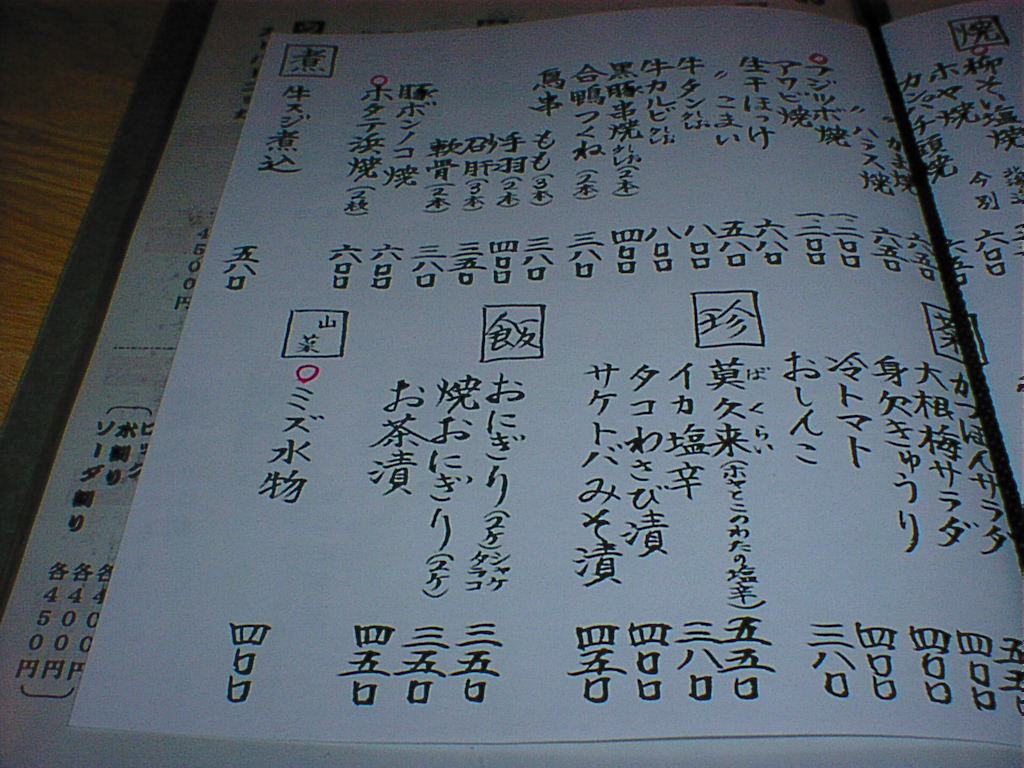 焼
柳
塩焼
ホヤ焼
六〇〇
〃ハラス焼
六五〇
フジツボ焼
一二〇〇
アワビ焼
一二〇〇
生干ほっけ
六八〇
〃こまい
五八〇
牛タン
八〇〇
牛カルビ
八〇〇
黒豚串焼(2本)
四〇〇
合鴨つくね(2本)
三八〇
鳥串 もも(3本)
三八〇
手羽(2本)
四〇〇
砂肝(3本)
三五〇
軟骨(2本)
三八〇
豚ボンノコ焼
六〇〇
ホタテ浜焼(2枚)
六〇〇
煮
牛スジ煮込
五八〇
菜
かつぽんサラダ
五五〇
大根梅サラダ
四〇〇
身欠きゅうり
四〇〇
冷トマト
四〇〇
おしんこ
三八〇
珍
莫久来(ホヤとこのわたの塩辛)
ばくらい
五五〇
イカ塩辛
三八〇
タコわさび漬
四〇〇
サケトバみそ漬
四五〇
飯
おにぎり(2ケ)シャケ タラコ
三五〇
焼おにぎり(2ケ)
三五〇
お茶漬
四五〇
山菜
ミズ水物
四〇〇
450円
水割り
ソーダ割り
各400円
各450円